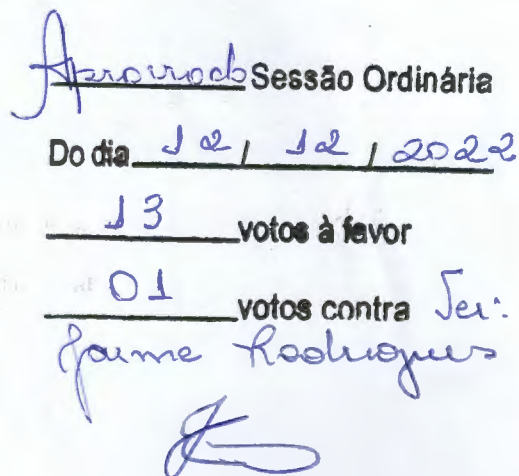 Aprovado Sessão Ordinária
Do dia 12 / 12 / 2022
13 votos à favor
01 votos contra Ver:
Jaime Rodrigues